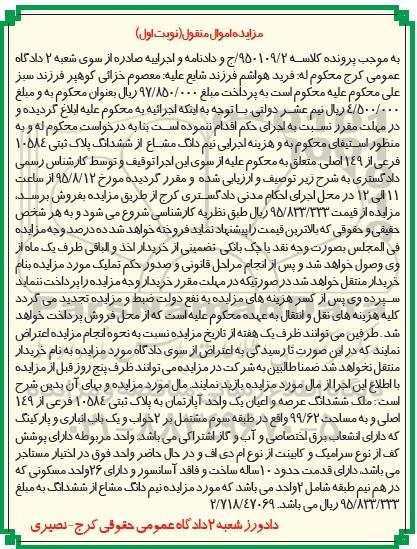 مزایده اموال منقول (نوبت اول)
به موجب پرونده کلاسه ۹۵۰۱۰۹/۲/ج و دادنامه و اجراییه صادره از سوی شعبه ۲ دادگاه
عمومی کرج محکوم له: فرید هواشم فرزند شایع علیه: معصوم خزائی کوهپر فرزند سبز
علی محکوم علیه محکوم است به پرداخت مبلغ ۹۷/۸۵۰/۰۰۰ ریال بعنوان محکوم به و مبلغ
۴/۵۰۰/۰۰۰ ریال نیم عشر دولتی. با توجه به اینکه اجرائیه به محکوم علیه ابلاغ گردیده و
در مهلت مقرر نسبت به اجرای حکم اقدام ننموده است بنا به درخواست محکوم له و به
منظور استیفای محکوم به و هزینه اجرایی نیم دانگ مشاع از ششدانگ پلاک ثبتی ۱۰۵۸۴
فرعی از ۱۴۹ اصلی متعلق به محکوم علیه از سوی این اجرا توقیف و توسط کارشناس رسمی
دادگستری به شرح زیر توصیف و ارزیابی شده و مقرر گردیده مورخ ۹۵/۸/۱۲ از ساعت
۱۱ الی ۱۲ در محل اجرای احکام مدنی دادگستری کرج از طریق مزایده بفروش برسد،
مزایده از قیمت ۹۵/۸۳۳/۳۳۳ ریال طبق نظریه کارشناسی شروع می شود و به هر شخص
حقیقی و حقوقی که بالاترین قیمت را پیشنهاد نماید فروخته خواهد شد ده درصد وجه مزایده
فی المجلس بصورت وجه نقد یا چک بانکی تضمینی از خریدار اخذ و الباقی ظرف یک ماه از
وی وصول خواهد شد و پس از انجام مراحل قانونی و صدور حکم تملیک مورد مزایده بنام
خریدار منتقل خواهد شد در صورتیکه در مهلت مقرر خریدار وجه مزایده را پرداخت ننماید
سپرده وی پس از کسر هزینه های مزایده به نفع دولت ضبط و مزایده تجدید می گردد
کلیه هزینه های نقل و انتقال به عهده محکوم علیه است که از محل فروش پرداخت خواهد
شد. طرفین می توانند ظرف یک هفته از تاریخ مزایده نسبت به نحوه انجام مزایده اعتراض
نمایند که در این صورت تا رسیدگی به اعتراض از سوی دادگاه مورد مزایده به نام خریدار
منتقل نخواهد شد ضمنا طالبین به شرکت در مزایده می توانند ظرف پنج روز قبل از مزایده
با اطلاع این اجرا از مال مورد مزایده بازید نمایند. مال مورد مزایده و بهای آن بدین شرح
است: ملک ششدانگ عرصه و اعیان یک واحد آپارتمان به پلاک ثبتی ۱۰۵۸۴ فرعی از ۱۴۹
اصلی و به مساحت ۹۹/۶۲ واقع در طبقه سوم مشتمل بر ۲خواب و یک باب انباری و پارکینگ
که دارای انشعاب برق اختصاصی و آب و گاز اشتراکی می باشد. واحد مربوطه دارای پوشش
کف از نوع سرامیک و کابینت از نوع ام دی اف و در حال حاضر واحد فوق در اختیار مستاجر
می باشد، دارای قدمت حدود ۱۰ساله ساخت و فاقد آسانسور و دارای ۲۶واحد مسکونی که
در هم نیم طبقه شامل ۲واحد می باشد که مورد مزایده نیم دانگ مشاع از ششدانگ به مبلغ
۹۵/۸۳۳/۳۳۳ ریال می باشد. ۲/۷۱۸/۴۷۰۶۹
دادورز شعبه ۲دادگاه عمومی حقوقی کرج-نصیری